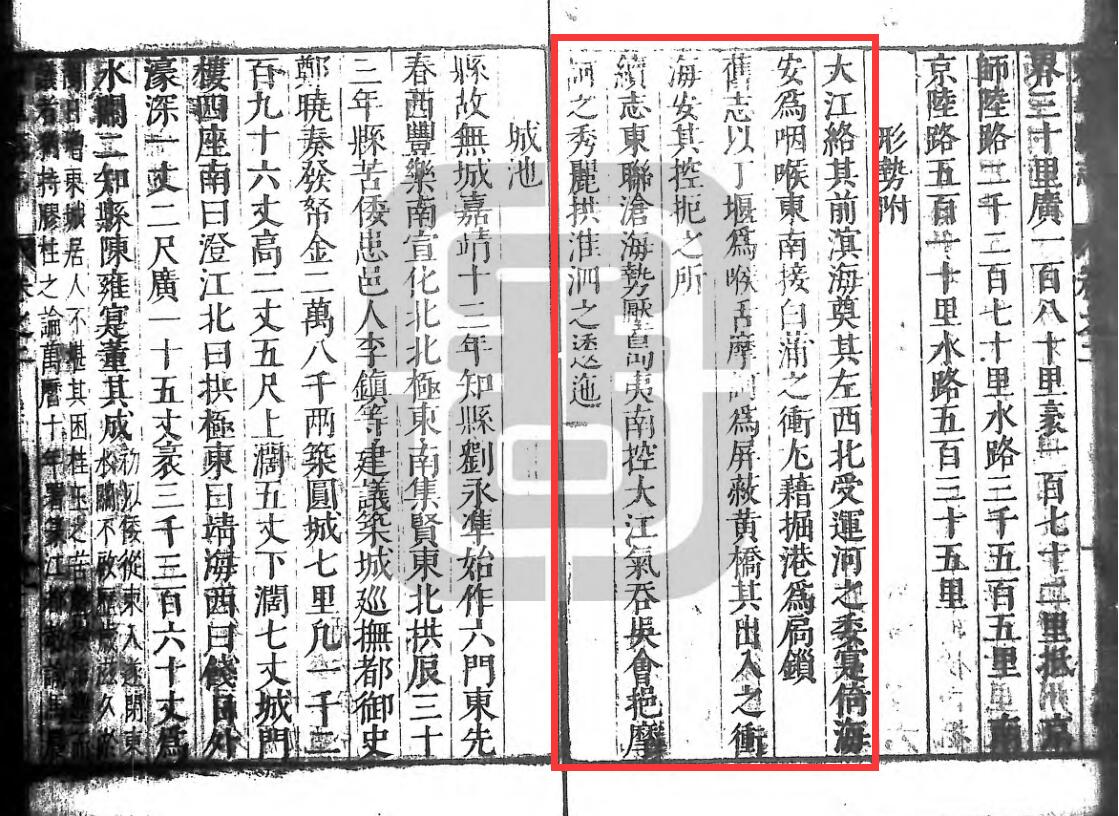 界三十里廣一百八十里袤一百七十二里抵
師陸路二千二百七十里水路三千五百五里
京陸路五百一十里水路五百二十五里
形勢附
大江絡其前濵海奠其左西北受運河之委寔倚海
安為咽喉東南接白蒲之衝尤藉掘港為局鎖
舊志以丁堰為喉舌摩訶為屏蔽黃橋其出入之衝
海安其控扼之所
續志東聯滄海勢壓島夷南控大江氣吞吳會挹摩
訶之秀麗拱淮泗之逶迤
城池
縣故無城嘉靖十三年知縣劉永凖始作六門東先
春西豐樂南宣化北北極東南集賢東北拱辰三十
三年縣苦倭患邑人李鎮等建議築城巡撫都御史
鄭曉奏發帑金二萬八千兩築圓城七里凡一千二
百九十六丈高二丈五尺上濶五丈下濶七丈城門
樓四座南曰澄江北曰拱極東曰靖海西曰錢日外
濠深一丈二尺廣一十五丈袤三千三百六十丈為
水關二知縣陳雍寔董其成初以倭從東入遂閉東
水關不啟
東城居人不堪其困
持膠柱之論萬曆十年